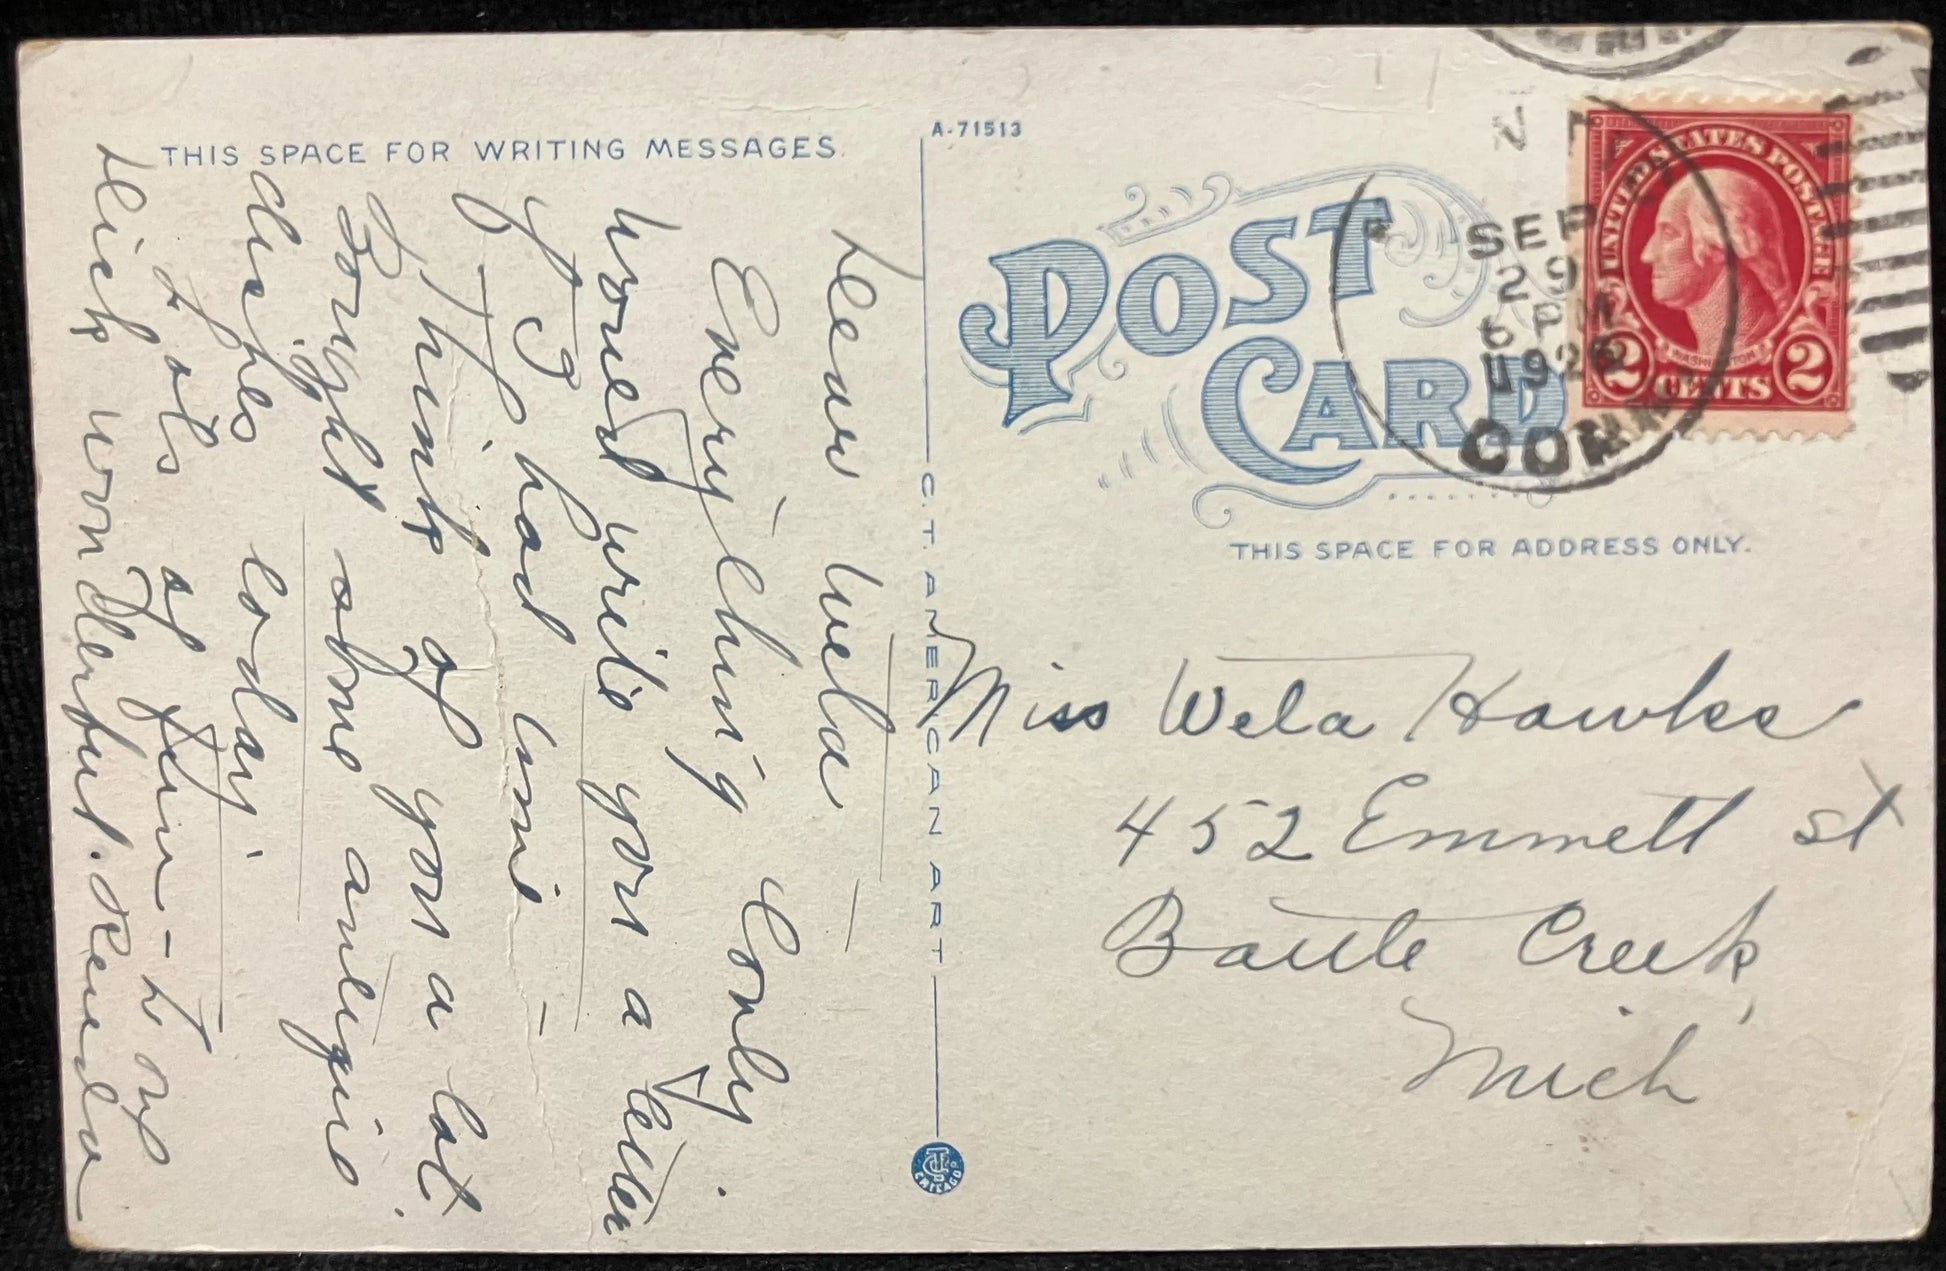 THIS SPACE FOR WRITING MESSAGES.
Dear Wela
Everything Lovely
Would write you a letter
if I had time -
Think of you a lot.
Bought some antique
dishes today
Lots of fun - to us
Dick wonderful.
A-71513
C.T. AMERICAN ART
CHICAGO
POST CARD
THIS SPACE FOR ADDRESS ONLY.
SEP
29
PM
1926
CONN
UNITED STATES POSTAGE
WASHINGTON
2 CENTS 2
Miss Wela Hawkes
452 Emmett St
Battle Creek,
Mich